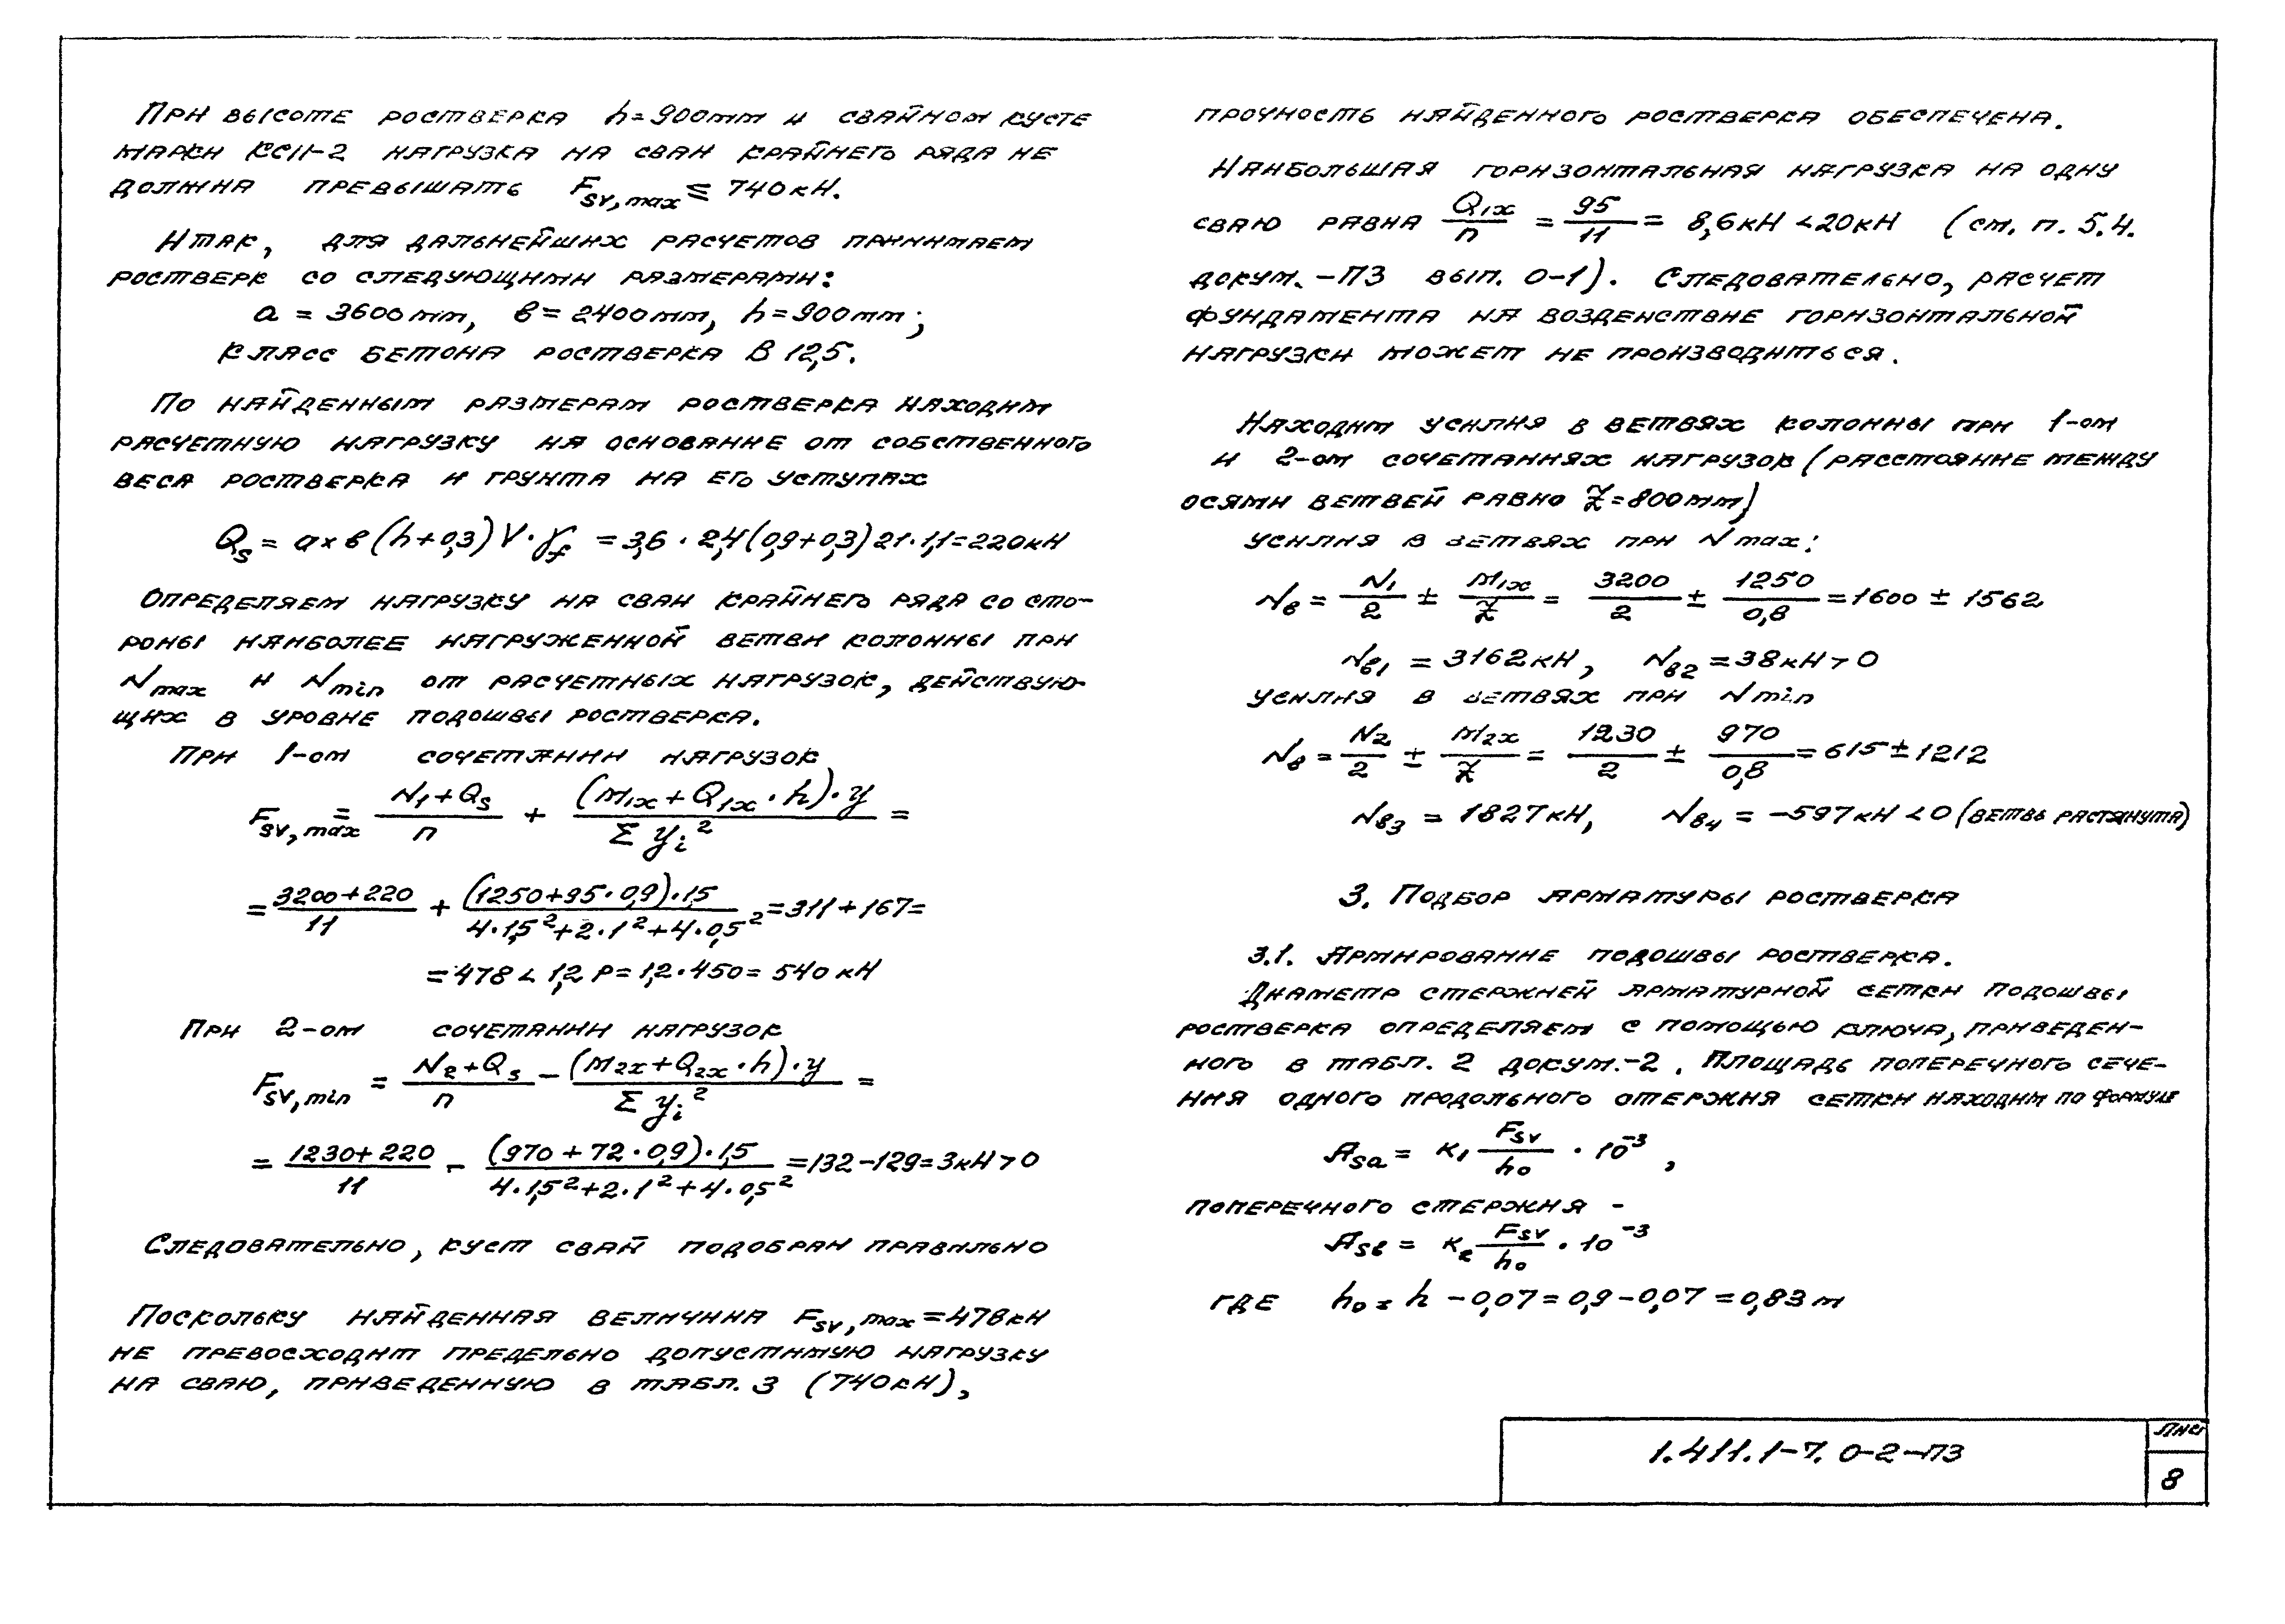 При высоте ростверка h=900мм и свайном кусте
марки КС11-2 нагрузка на сваи крайнего ряда не
должна превышать Fsv,max ≤ 740кН.
Итак, для дальнейших расчетов принимаем
ростверк со следующими размерами:
a = 3600мм, в = 2400мм, h = 900мм;
класс бетона ростверка В 12,5.
По найденным размерам ростверка находим
расчетную нагрузку на основание от собственного
веса ростверка и грунта на его уступах
Qs = a×в(h+0,3)V·γf = 3,6 · 2,4(0,9+0,3)21·1,1=220кН
Определяем нагрузку на сваи крайнего ряда со сто-
роны наиболее нагруженной ветви колонны при
Nmax и Nmin от расчетных нагрузок, действую-
щих в уровне подошвы ростверка.
При 1-ом сочетании нагрузок
Fsv,max = (N1+Qs)/n + ((M1x+Q1x·h)·y)/(Σ yi²) =
= (3200+220)/11 + ((1250+95·0,9)·1,5)/(4·1,5²+2·1²+4·0,5²) = 311+167=
= 478 < 1,2 P = 1,2·450 = 540 кН
При 2-ом сочетании нагрузок
Fsv,min = (N2+Qs)/n − ((M2x+Q2x·h)·y)/(Σ yi²) =
= (1230+220)/11 − ((970+72·0,9)·1,5)/(4·1,5²+2·1²+4·0,5²) = 132−129=3кН>0
Следовательно, куст свай подобран правильно
Поскольку найденная величина Fsv,max=478кН
не превосходит предельно допустимую нагрузку
на сваю, приведенную в табл. 3 (740кН),
прочность найденного ростверка обеспечена.
Наибольшая горизонтальная нагрузка на одну
сваю равна Q1x/n = 95/11 = 8,6кН <20кН (см. п. 5.4.
докум. -ПЗ вып. 0-1). Следовательно, расчет
фундамента на воздействие горизонтальной
нагрузки может не производиться.
Находим усилия в ветвях колонны при 1-ом
и 2-ом сочетаниях нагрузок (расстояние между
осями ветвей равно z̃=800мм)
усилия в ветвях при Nmax:
Nв = N1/2 ± M1x/z̃ = 3200/2 ± 1250/0,8 = 1600 ± 1562
Nв1 = 3162кН, Nв2 = 38кН>0
усилия в ветвях при Nmin
Nв = N2/2 ± M2x/z̃ = 1230/2 ± 970/0,8 = 615 ± 1212
Nв3 = 1827кН, Nв4 = −597кН <0 (ветвь растянута)
3. Подбор арматуры ростверка
3.1. Армирование подошвы ростверка.
Диаметр стержней арматурной сетки подошвы
ростверка определяем с помощью ключа, приведен-
ного в табл. 2 докум.-2. Площадь поперечного сече-
ния одного продольного стержня сетки находим по формуле
Asa = к1 Fsv/h0 · 10⁻³,
поперечного стержня -
Asв = к2 Fsv/h0 · 10⁻³
где h0 = h − 0,07 = 0,9 − 0,07 = 0,83 м
1.411.1-7. 0-2-ПЗ
Лист
8